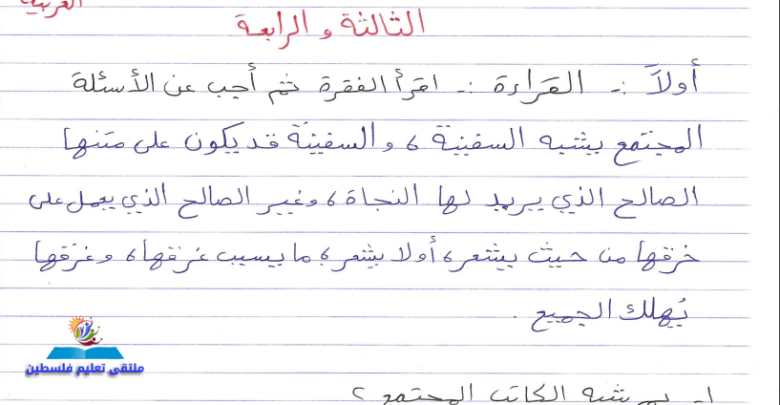 العربية
الثالثة والرابعة
أولاً :- القراءة :- اقرأ الفقرة ثم أجب عن الأسئلة
المجتمع يشبه السفينة ، والسفينة قد يكون على متنها
الصالح الذي يريد لها النجاة ، وغير الصالح الذي يعمل على
خرقها من حيث يشعر ، أو لا يشعر ؛ ما يسبب غرقها ، وغرقها
يُهلك الجميع .
ملتقى تعليم فلسطين
1- بم شبه الكاتب المجتمع ؟